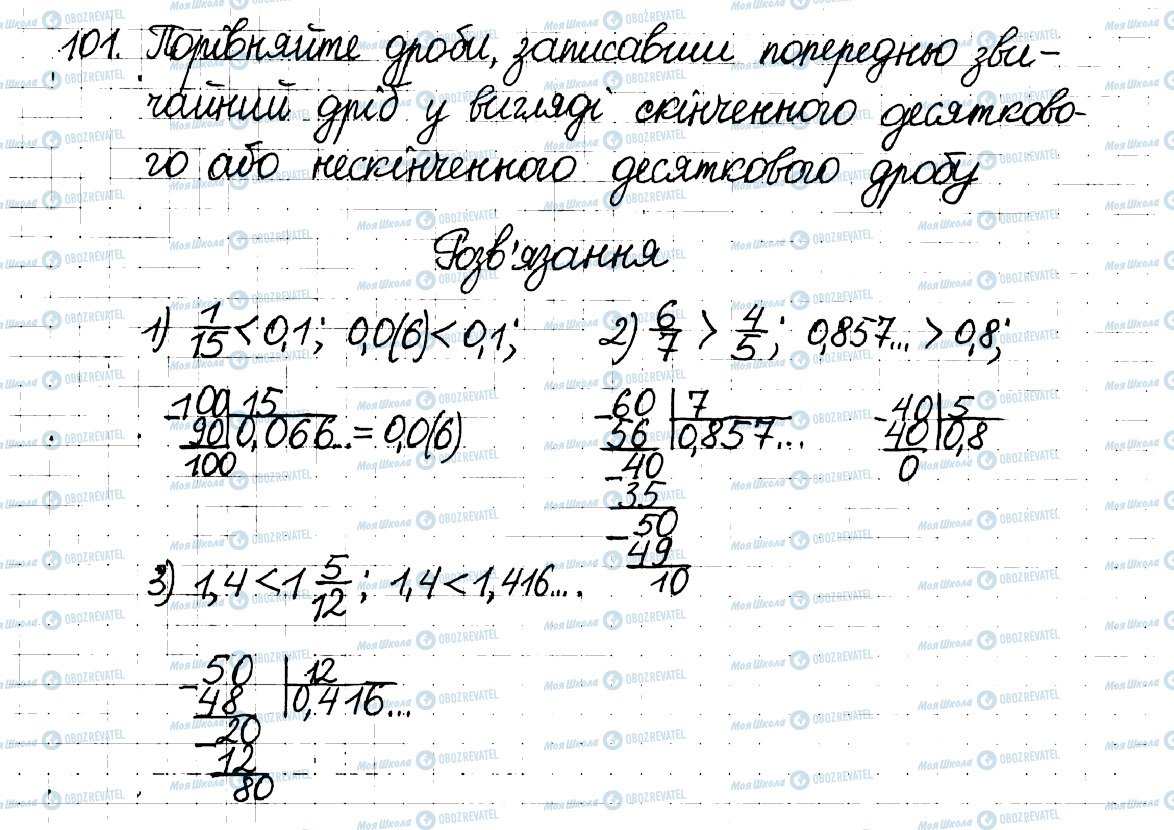 101. Порівняйте дроби, записавши попередньо зви-
чайний дріб у вигляді скінченного десятково-
го або нескінченного десяткового дробу
Розв'язання
1) 1/15 < 0,1; 0,0(6) < 0,1; 2) 6/7 > 4/5; 0,857... > 0,8;
-100 | 15
90 | 0,066... = 0,0(6)
100
-60 | 7
56 | 0,857...
-40
35
-50
49
10
-40 | 5
40 | 0,8
0
3) 1,4 < 1 5/12; 1,4 < 1,416... .
-50 | 12
48 | 0,416...
-20
12
80
Моя Школа OBOZREVATEL